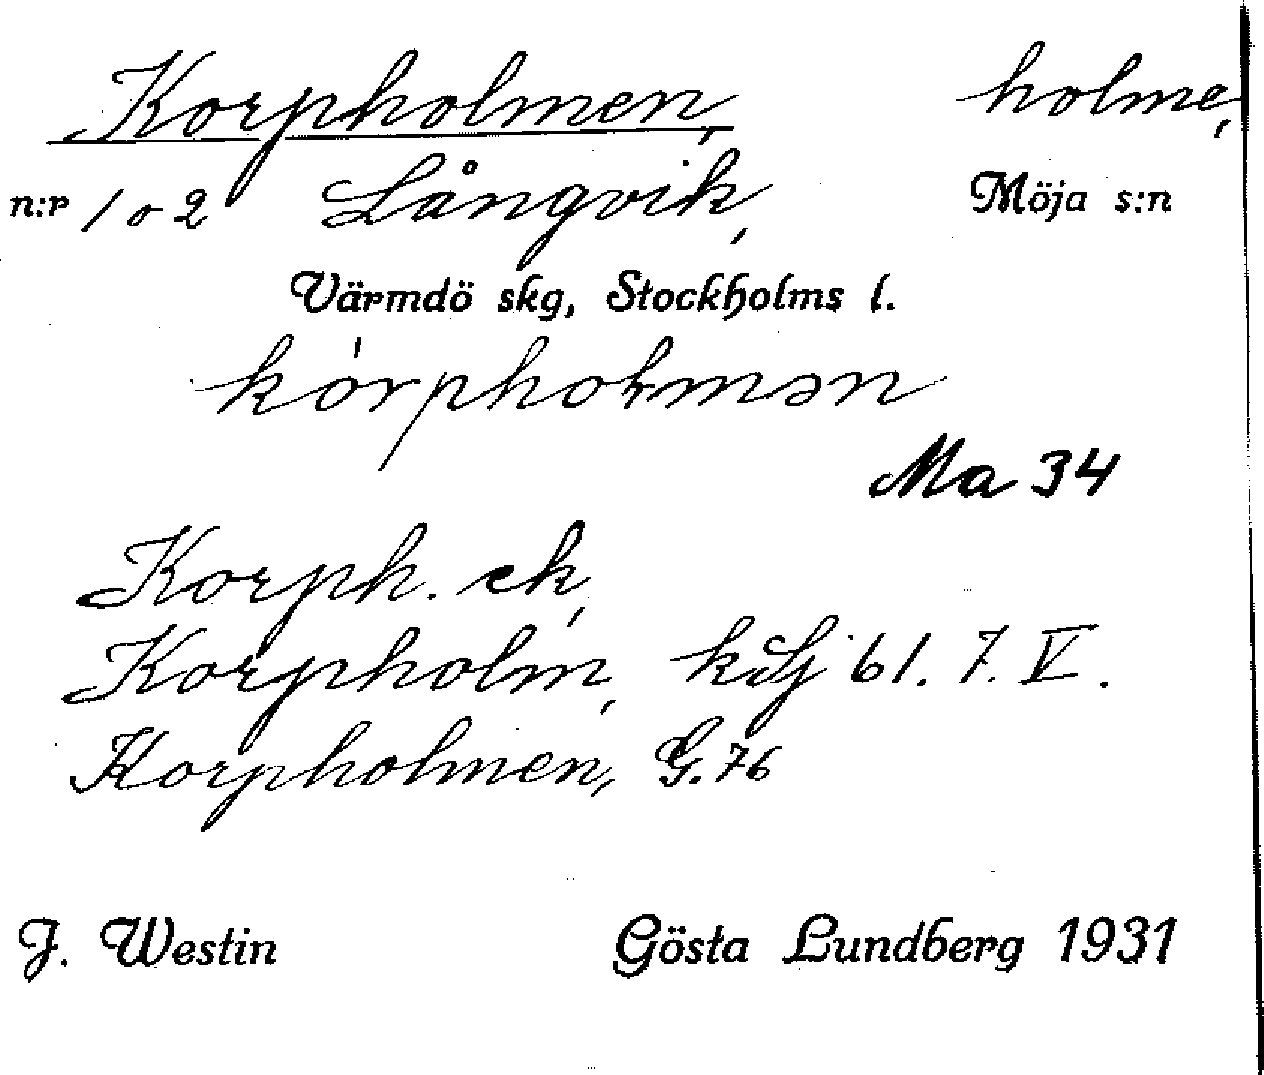 Korpholmen, holme,
n:r 1 o 2 Långvik, Möja s:n
Värmdö skg, Stockholms l.
kórpholmən
Ma 34
Korph. ek,
Korpholm, 61. 7. V.
Korpholmen, G. 76
J. Westin Gösta Lundberg 1931